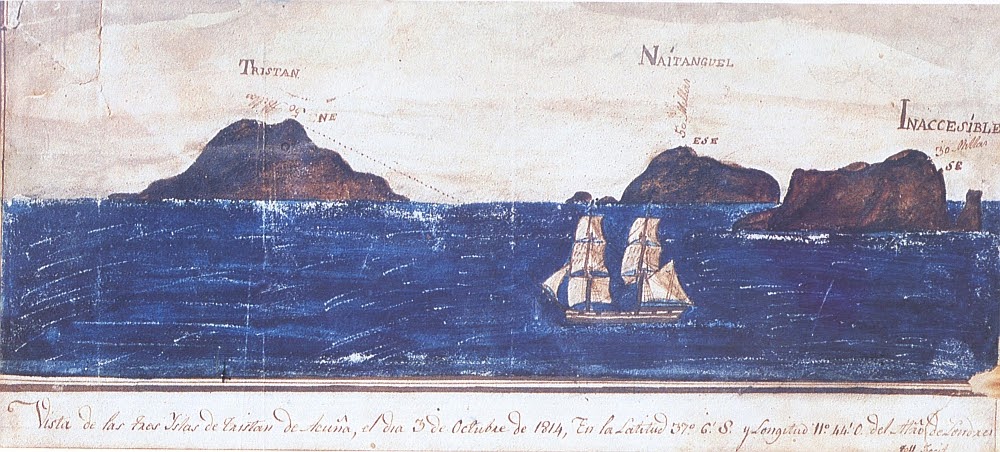 TRISTAN
NE
NAITANGUEL
50 Millas
ESE
INACCESIBLE
30 Millas
SE
Vista de las tres Yslas de tristan de Acuña, el dia 3 de Octubre de 1814, En la Latitud 37º 6' S. y Longitud 11º 44' O. del Mño de Londres